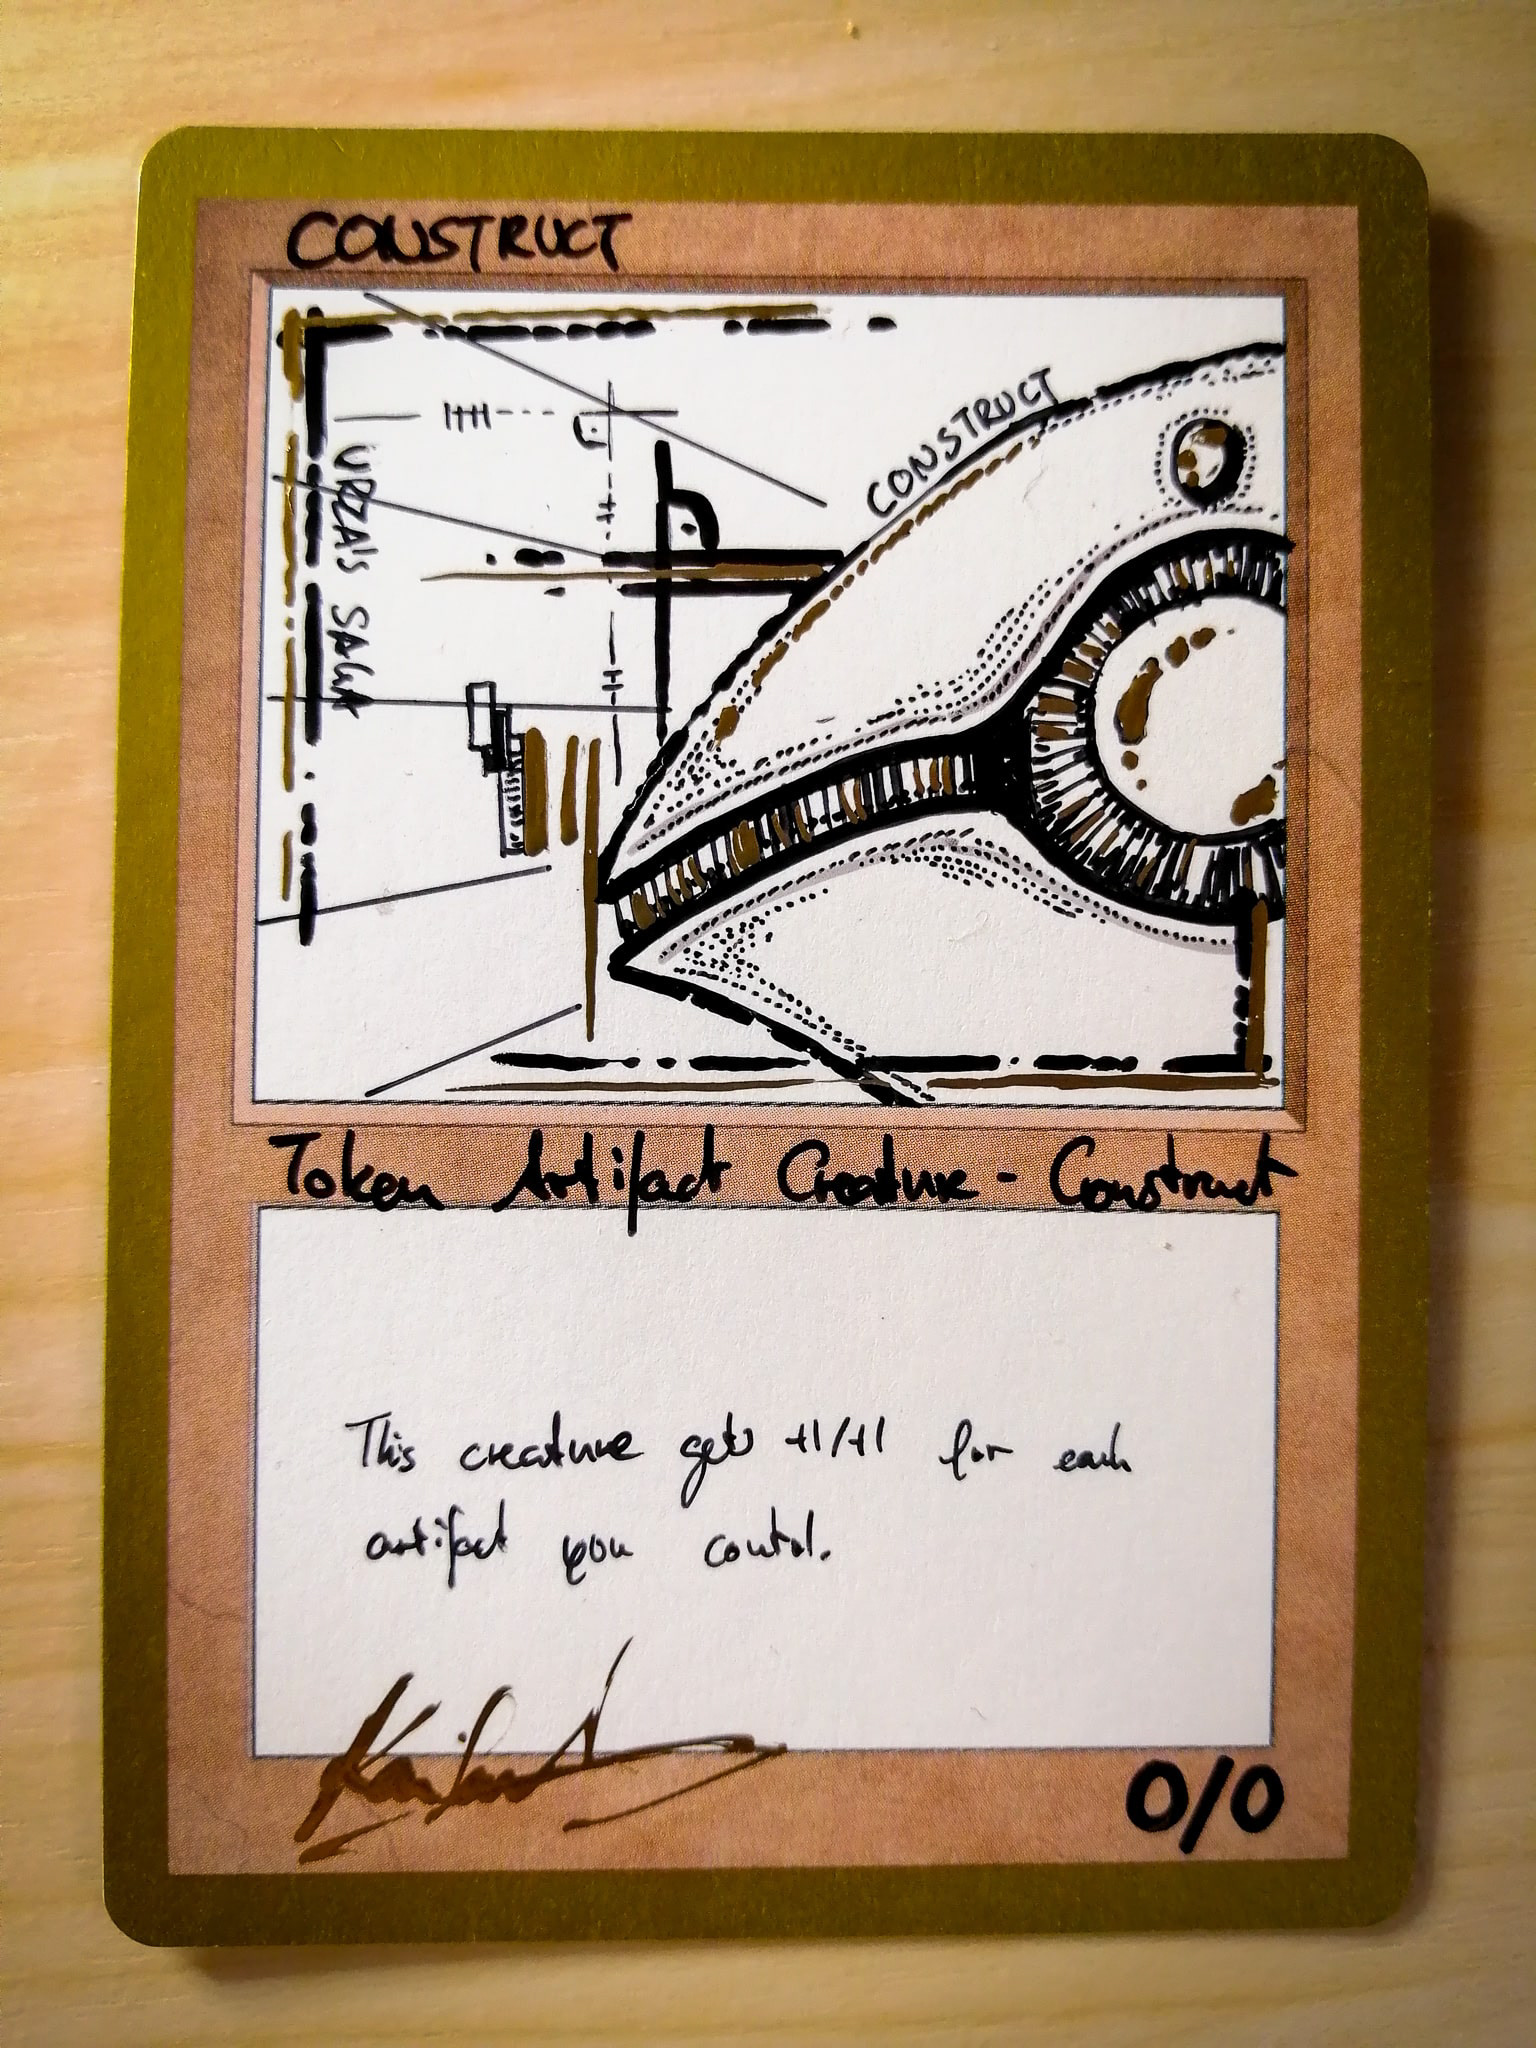 CONSTRUCT
CONSTRUCT
URZA'S SAGA
Token Artifact Creature - Construct
This creature gets +1/+1 for each
artifact you control.
0/0